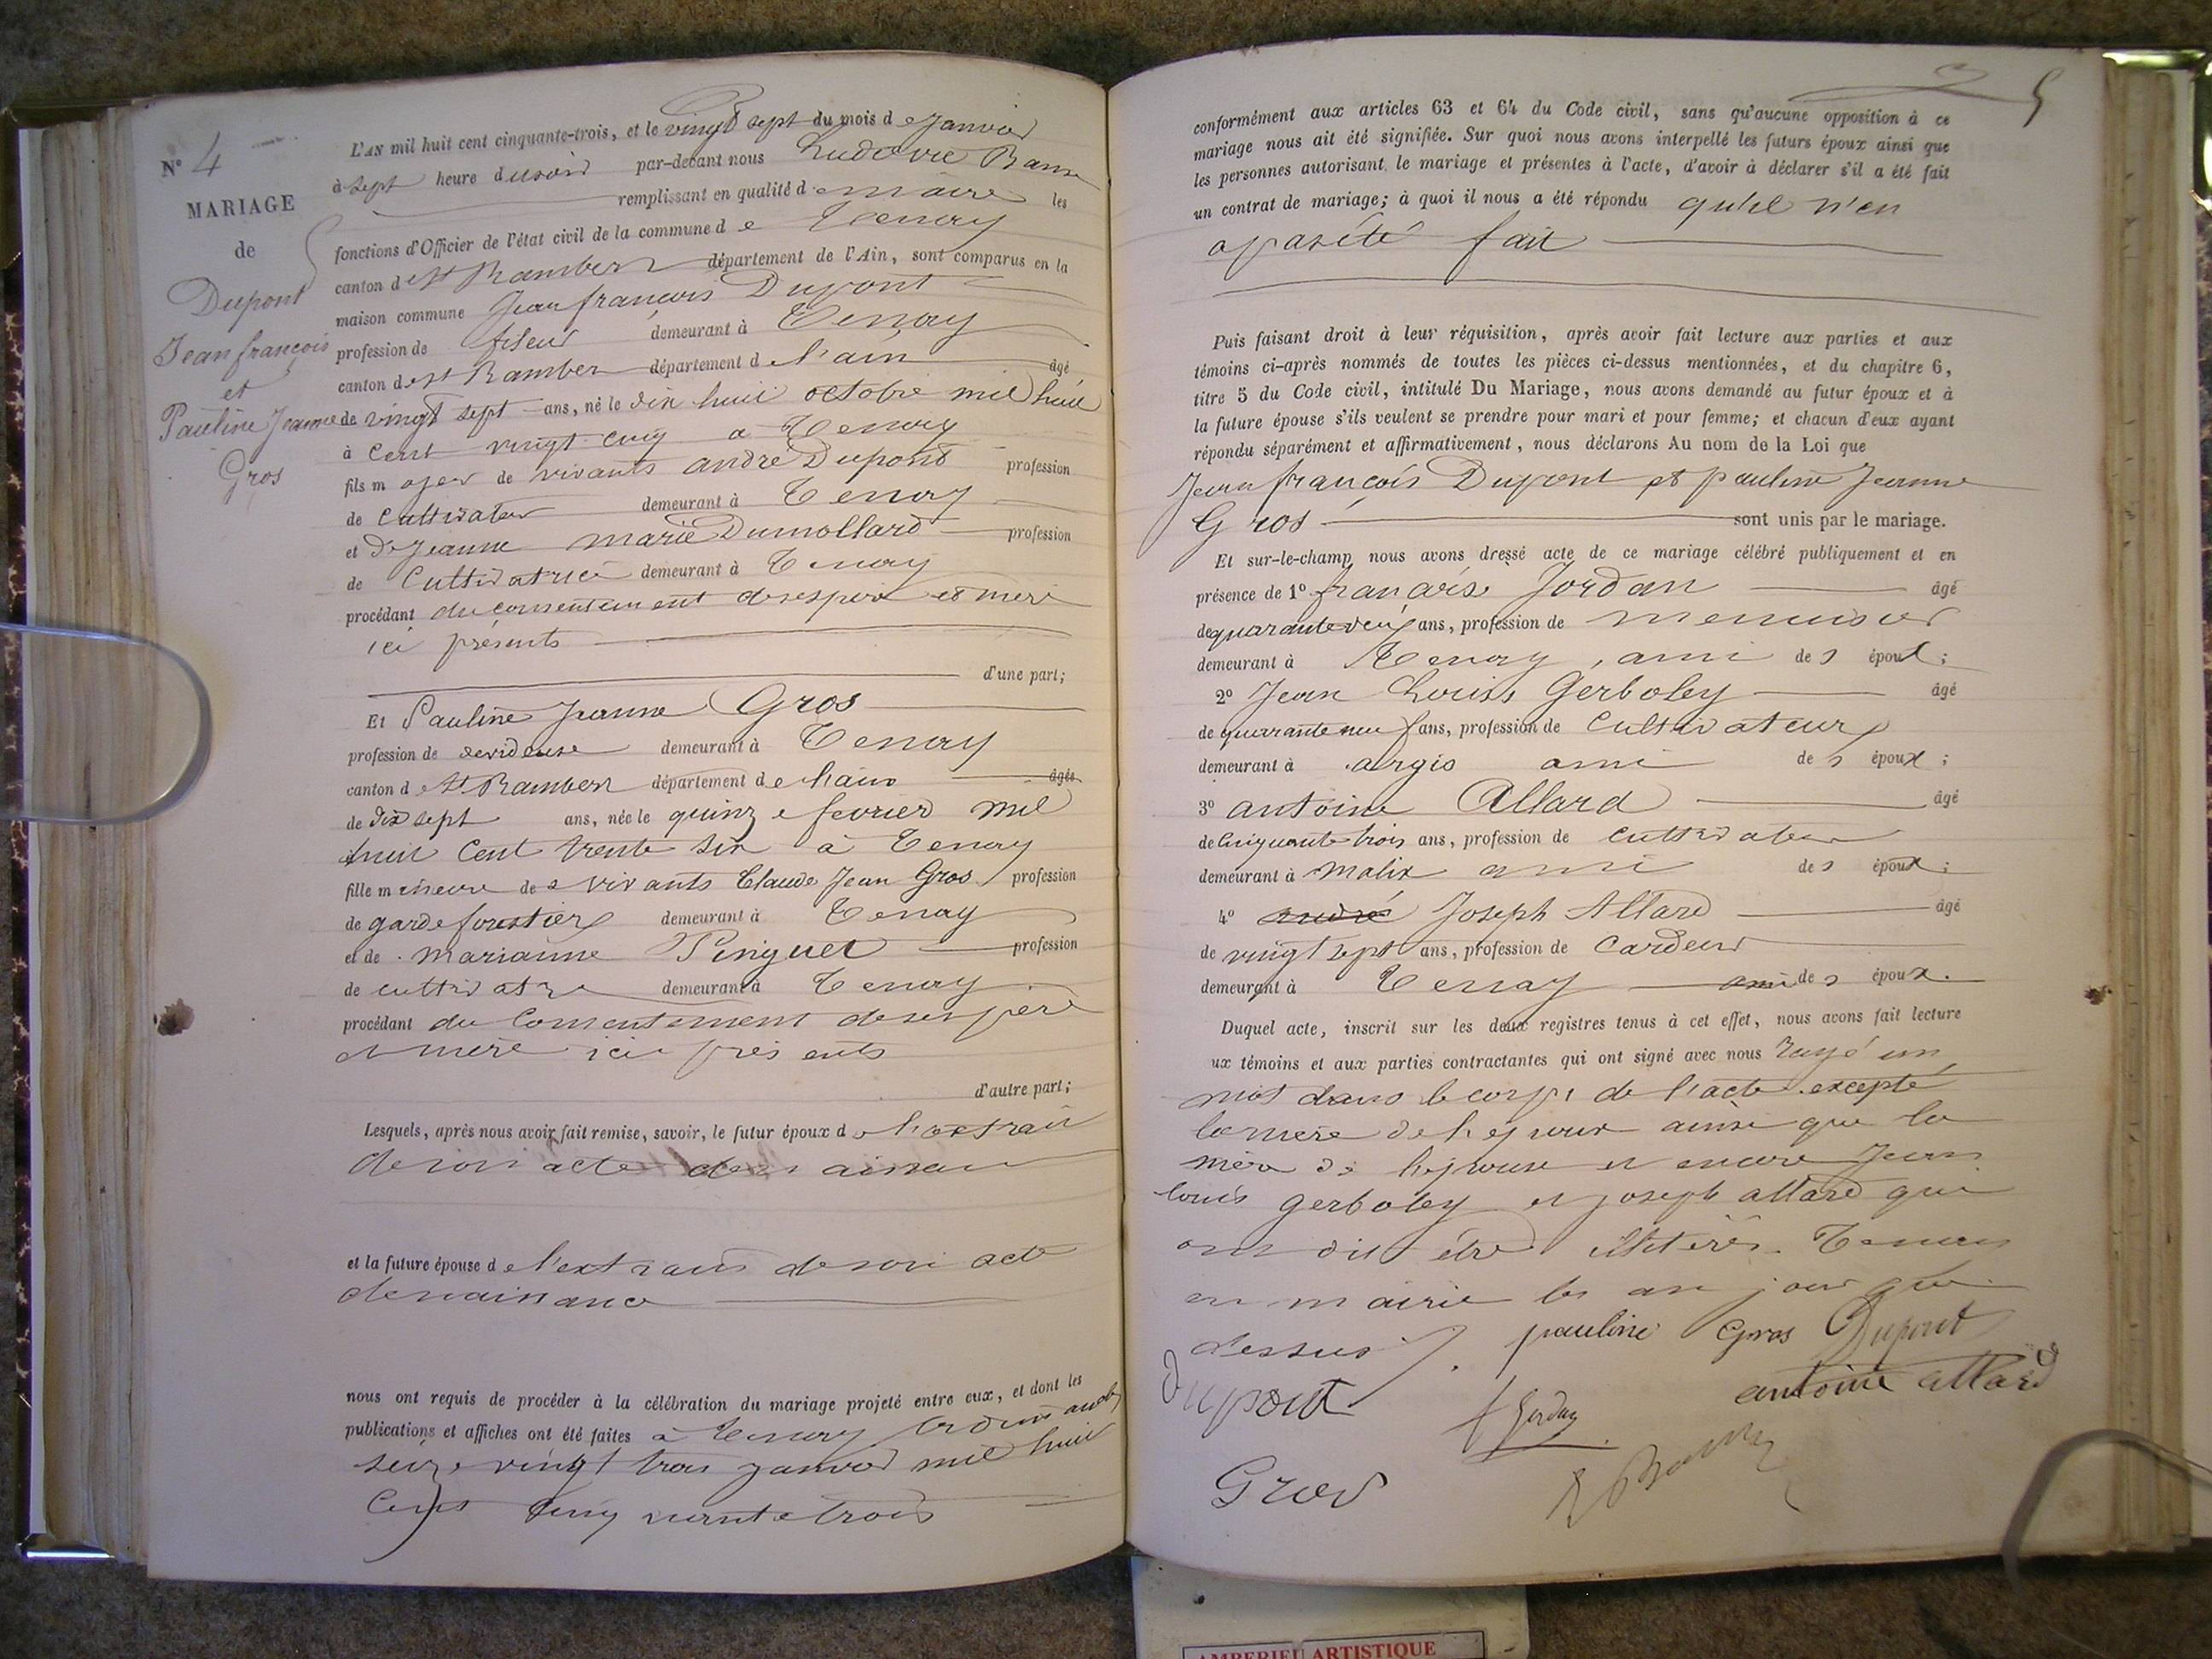 N° 4
MARIAGE
de
Dupont
Jean françois
et
Pauline Jeanne
Gros
L'AN mil huit cent cinquante-trois, et le vingt sept du mois de Janvier
à sept heure du soir par-devant nous Ludovic
remplissant en qualité de maire les
fonctions d'Officier de l'état civil de la commune de Tenay
canton de St Rambert département de l'Ain, sont comparus en la
maison commune Jean françois Dupont
profession de fileur demeurant à Tenay
canton de St Rambert département de l'ain âgé
de vingt sept ans, né le dix huit octobre mil huit
à Cent vingt cinq à Tenay
fils majeur de vivants andré Dupont profession
de Cultivateur demeurant à Tenay
et de Jeanne marie Dumollard profession
de Cultivatrice demeurant à Tenay
procédant du consentement de ses père et mère
ici présents
d'une part;
Et Pauline Jeanne Gros
profession de devideuse demeurant à Tenay
canton de St Rambert département de l'ain âgée
de dix sept ans, née le quinze fevrier mil
huit Cent trente six à Tenay
fille mineure de s vivants Claude Jean Gros profession
de garde forestier demeurant à Tenay
et de marianne Pinguet profession
de cultivatrice demeurant à Tenay
procédant du Consentement de ses père
et mère ici présents
d'autre part;
Lesquels, après nous avoir fait remise, savoir, le futur époux de l'extrait
de son acte de naissance
et la future épouse de l'extrait de son acte
de naissance
nous ont requis de procéder à la célébration du mariage projeté entre eux, et dont les
publications et affiches ont été faites à Tenay les dimanches
seize vingt trois janvier mil huit
Cent cinquante trois
5
conformément aux articles 63 et 64 du Code civil, sans qu'aucune opposition à ce
mariage nous ait été signifiée. Sur quoi nous avons interpellé les futurs époux ainsi que
les personnes autorisant le mariage et présentes à l'acte, d'avoir à déclarer s'il a été fait
un contrat de mariage; à quoi il nous a été répondu qu'il n'en
a pas été fait
Puis faisant droit à leur réquisition, après avoir fait lecture aux parties et aux
témoins ci-après nommés de toutes les pièces ci-dessus mentionnées, et du chapitre 6,
titre 5 du Code civil, intitulé Du Mariage, nous avons demandé au futur époux et à
la future épouse s'ils veulent se prendre pour mari et pour femme; et chacun d'eux ayant
répondu séparément et affirmativement, nous déclarons Au nom de la Loi que
Jean françois Dupont et pauline Jeanne
Gros sont unis par le mariage.
Et sur-le-champ nous avons dressé acte de ce mariage célébré publiquement et en
présence de 1° françois Jordan âgé
de quarante ans, profession de menuisier
demeurant à Tenay, ami des époux;
2° Jean Louis Gerboley âgé
de quarante neuf ans, profession de Cultivateur
demeurant à argis ami des époux;
3° antoine Allard âgé
de Cinquante trois ans, profession de Cultivateur
demeurant à Malix ami des époux;
4° andré Joseph Allard âgé
de vingt sept ans, profession de Cardeur
demeurant à Tenay ami des époux.
Duquel acte, inscrit sur les deux registres tenus à cet effet, nous avons fait lecture
ux témoins et aux parties contractantes qui ont signé avec nous Rayé un
mot dans le corps de l'acte. excepté
la mère de l'époux ainsi que la
mère de l'épouse et encore Jean
louis gerboley et joseph allard qui
ont dit être illitérés. Tenay
en mairie les an jour que
dessus. pauline Gros Dupont
Dupont f Jordan antoine allard
Gros
AMBERIEU ARTISTIQUE